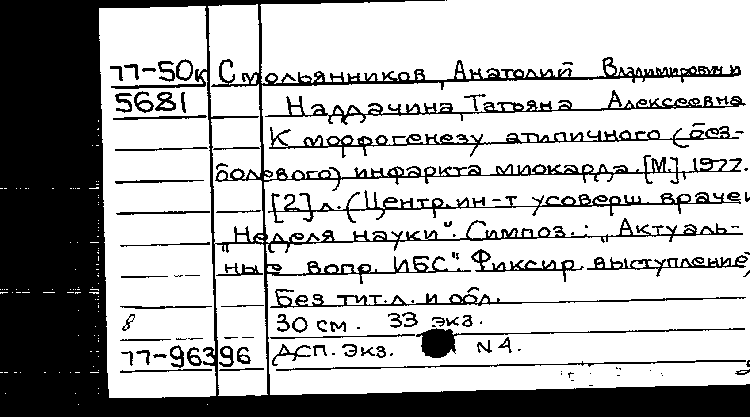 77-50к Смольянников, Анатолий Владимирович и
5681 Наддачина, Татьяна Алексеевна
К морфогенезу атипичного (без-
болевого) инфаркта миокарда. [М.], 1977.
[2] л. (Центр. ин-т усоверш. врачей
„Неделя науки". Симпоз.: „Актуаль-
ные вопр. ИБС". Фиксир. выступление)
Без тит. л. и обл.
8 30 см. 33 экз.
77-96396 ДСП. Экз. N 4.